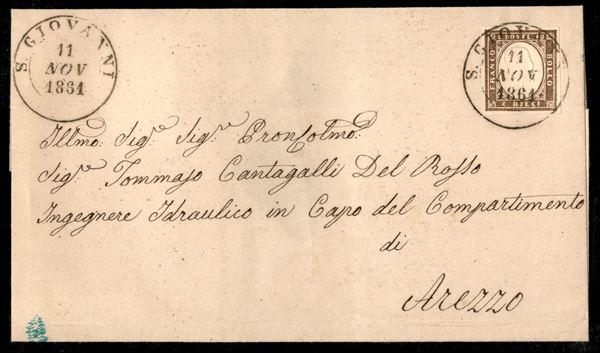 S. GIOVANNI
11
NOV
1861
FRANCO
POSTE
BOLLO
C. DIECI
S. GIOVANNI
11
NOV
1861
Illmo: Sigre Sigre Pron: Colmo:
Sigre Tommaso Cantagalli Del Rosso
Ingegnere Idraulico in Capo del Compartimento
di
Arezzo